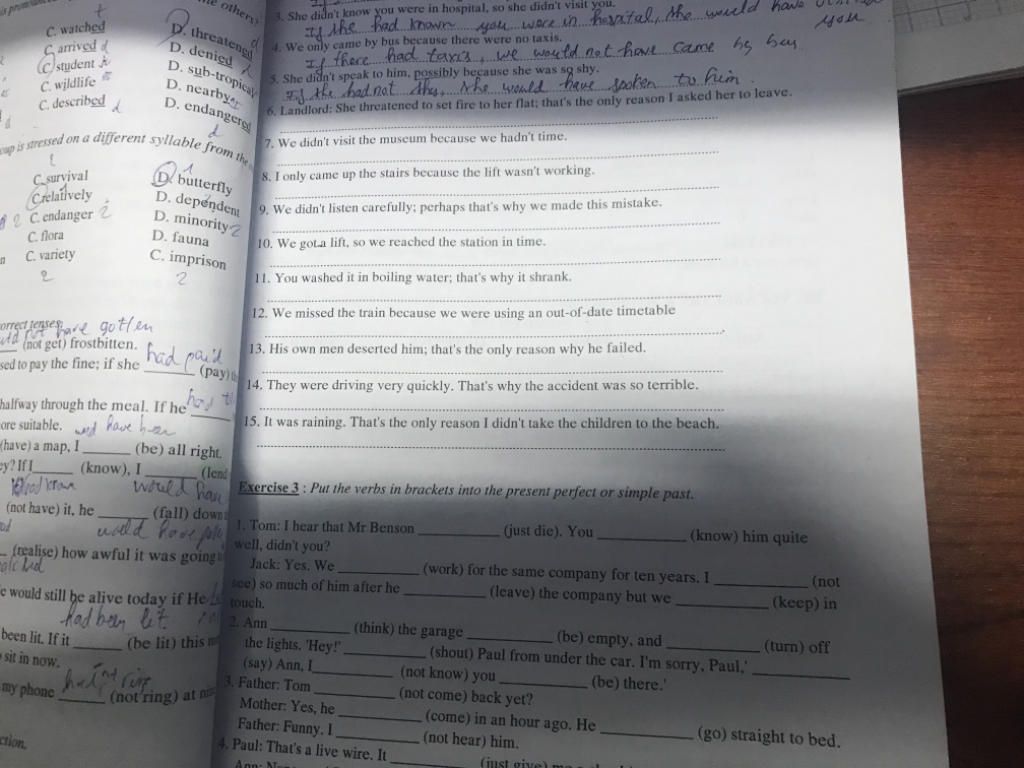 the others?
C. watched
D. threatened
C. arrived
D. denied
C. student
D. sub-tropical
C. wildlife
D. nearby
C. described
D. endangered
is stressed on a different syllable from the
C. survival
D. butterfly
C. relatively
D. dependent
C. endanger 2
D. minority 2
C. flora
D. fauna
C. variety
C. imprison
2
2
tenses.
have gotten
(not get) frostbitten.
sed to pay the fine; if she had paid (pay)
halfway through the meal. If he
ore suitable.
have been
(have) a map, I ______ (be) all right.
ey? If I ______ (know), I ______ (lend
would have
(not have) it, he ______ (fall) down
would have
(realise) how awful it was going
e would still be alive today if He
had been lit
been lit. If it ______ (be lit) this
sit in now.
my phone ______ (not ring) at
ction.
3. She didn't know you were in hospital, so she didn't visit you.
If she had known you were in hospital, she would have visited you
4. We only came by bus because there were no taxis.
If there had taxis, we would not have came by bus
5. She didn't speak to him, possibly because she was so shy.
If she had not shy, she would have spoken to him.
6. Landlord: She threatened to set fire to her flat; that's the only reason I asked her to leave.
7. We didn't visit the museum because we hadn't time.
8. I only came up the stairs because the lift wasn't working.
9. We didn't listen carefully; perhaps that's why we made this mistake.
10. We got a lift, so we reached the station in time.
11. You washed it in boiling water; that's why it shrank.
12. We missed the train because we were using an out-of-date timetable
13. His own men deserted him; that's the only reason why he failed.
14. They were driving very quickly. That's why the accident was so terrible.
15. It was raining. That's the only reason I didn't take the children to the beach.
Exercise 3 : Put the verbs in brackets into the present perfect or simple past.
1. Tom: I hear that Mr Benson ______ (just die). You ______ (know) him quite
well, didn't you?
Jack: Yes. We ______ (work) for the same company for ten years. I ______ (not
see) so much of him after he ______ (leave) the company but we ______ (keep) in
touch.
2. Ann ______ (think) the garage ______ (be) empty, and ______ (turn) off
the lights. 'Hey!' ______ (shout) Paul from under the car. I'm sorry, Paul,' ______
(say) Ann, I ______ (not know) you ______ (be) there.'
3. Father: Tom ______ (not come) back yet?
Mother: Yes, he ______ (come) in an hour ago. He ______ (go) straight to bed.
Father: Funny. I ______ (not hear) him.
4. Paul: That's a live wire. It ______ (just give)